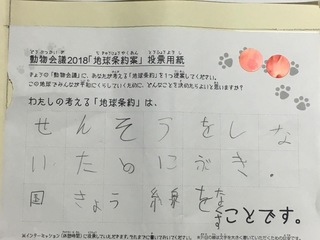 動物会議2018「地球条約案」投票用紙
きょうの「動物会議」に、あなたが考える「地球条約」を1つ提案してください。
この地球でみんなが平和にくらしていくために、どんなことを決めたらよいと思いますか?
わたしの考える「地球条約」は、
せんそうをしな
いために
国きょう線をなくす
ことです。